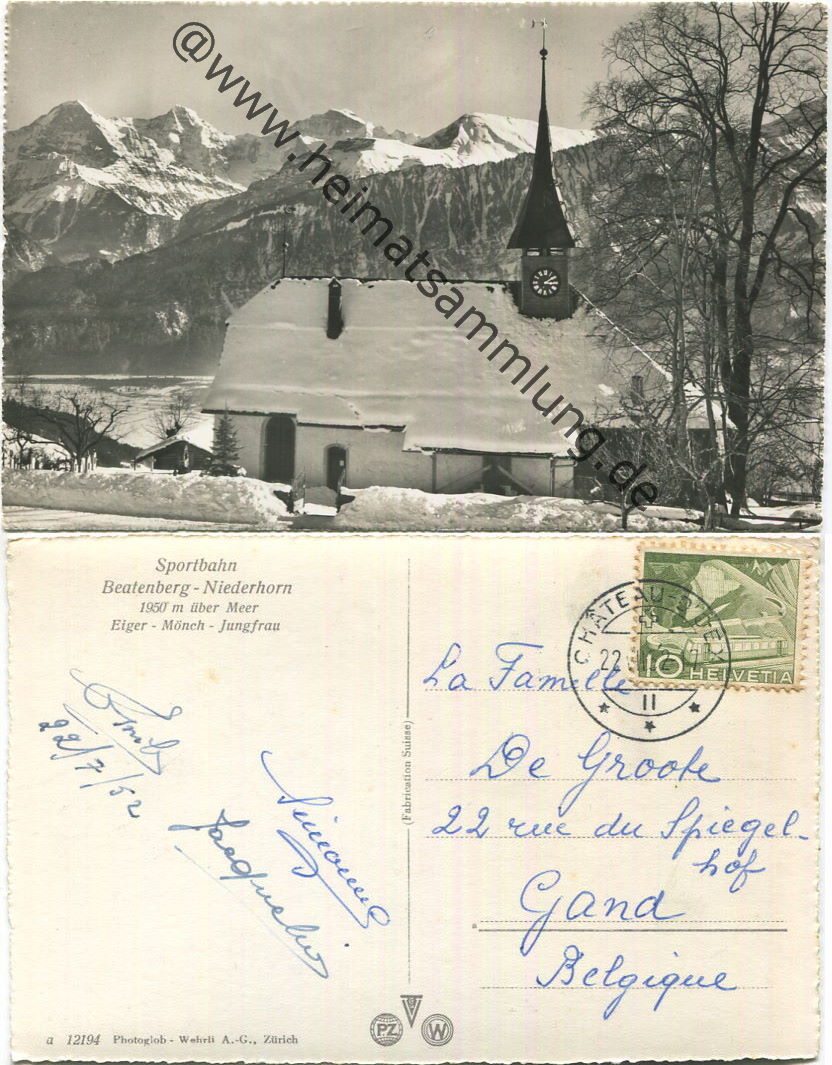 @www.heimatsammlung.de
Sportbahn
Beatenberg - Niederhorn
1950 m über Meer
Eiger - Mönch - Jungfrau
22/7/52
Simonne
Jacqueline
(Fabrication Suisse)
CHÂTEAU-D'ŒX
II
10 HELVETIA
La Famille
De Groote
22 rue du Spiegel-
hof
Gand
Belgique
a 12194 Photoglob - Wehrli A.-G., Zürich
PZ W